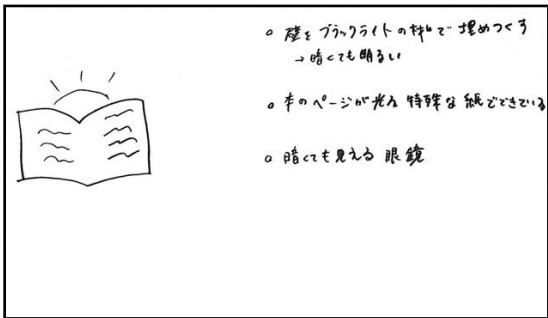 ○ 壁をブラックライトの材料で埋めつくす
→暗くても明るい
○ 本のページが光る特殊な紙でできている
○ 暗くても見える眼鏡